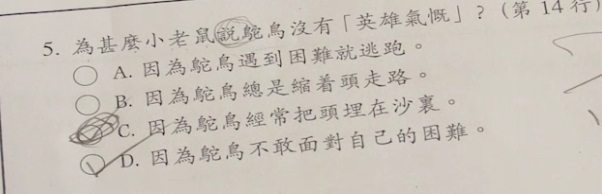 5. 為甚麼小老鼠說鴕鳥沒有「英雄氣慨」？(第 14 行)
A. 因為鴕鳥遇到困難就逃跑。
B. 因為鴕鳥總是縮着頭走路。
C. 因為鴕鳥經常把頭埋在沙裏。
D. 因為鴕鳥不敢面對自己的困難。